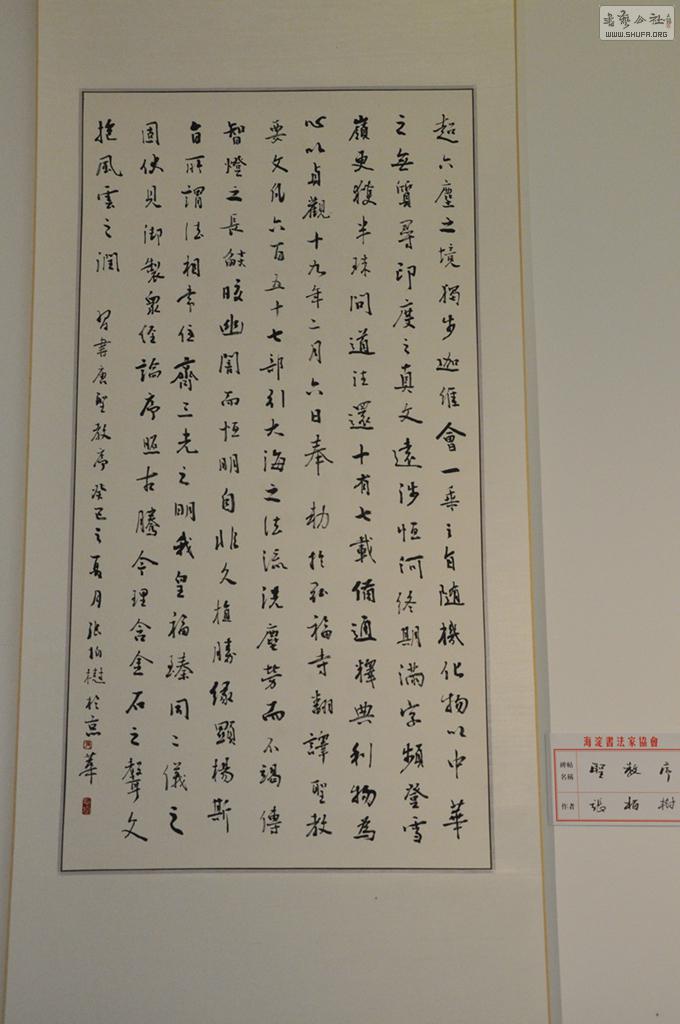 超六塵之境獨步迦維會一乘之旨随機化物以中華
之無質尋印度之真文遠涉恒河終期滿字頻登雪
嶺更獲半珠問道法還十有七載備通釋典利物為
心以貞觀十九年二月六日奉勅於弘福寺翻譯聖教
要文凡六百五十七部引大海之法流洗塵勞而不竭傳
智燈之長焰皎幽闇而恒明自非久植勝緣顯揚斯
旨所謂法相常住齊三光之明我皇福臻同二儀之
固伏見御製衆經論序照古騰今理含金石之聲文
抱風雲之潤 習書唐聖教序癸巳之夏月張柏樹於京華
書藝公社
WWW.SHUFA.ORG
海淀書法家協會
碑帖名稱 聖教序
作者 張柏樹